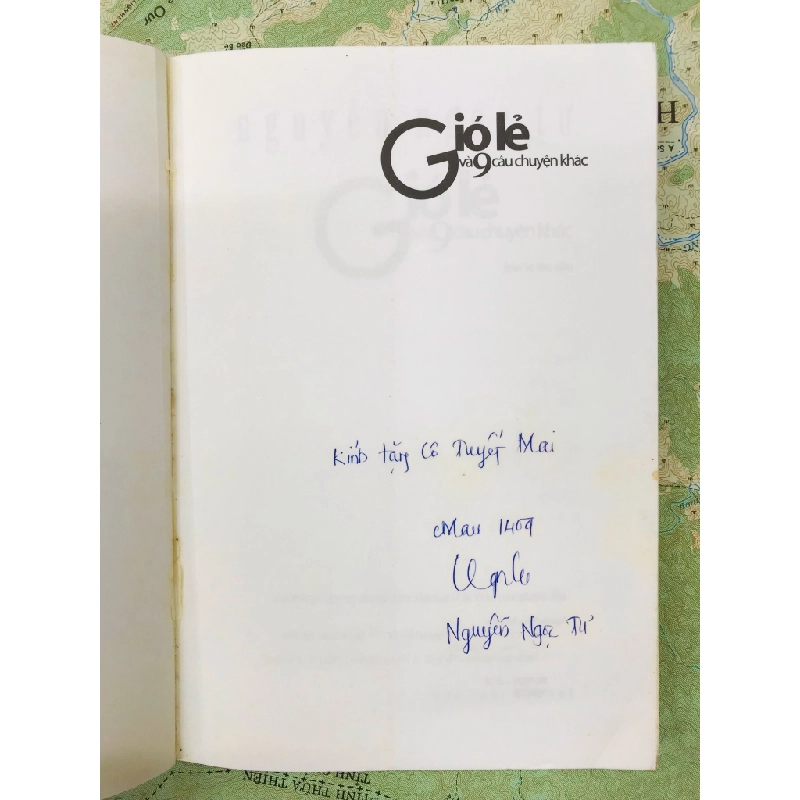 Gió lẻ
và 9 câu chuyện khác
Kính tặng Cô Tuyết Mai
CMau 1409
Nguyễn Ngọc Tư
TỈNH THỪA THIÊN